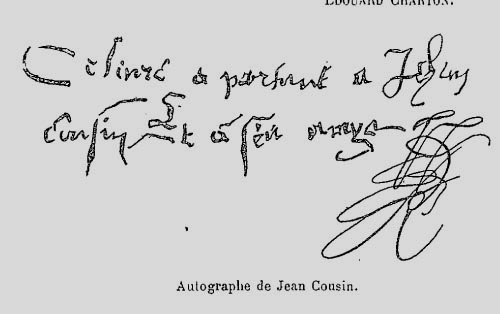 ÉDOUARD CHARTON.
Ce livre a partient a Jehan
Cousin Et a ses amys
Autographe de Jean Cousin.